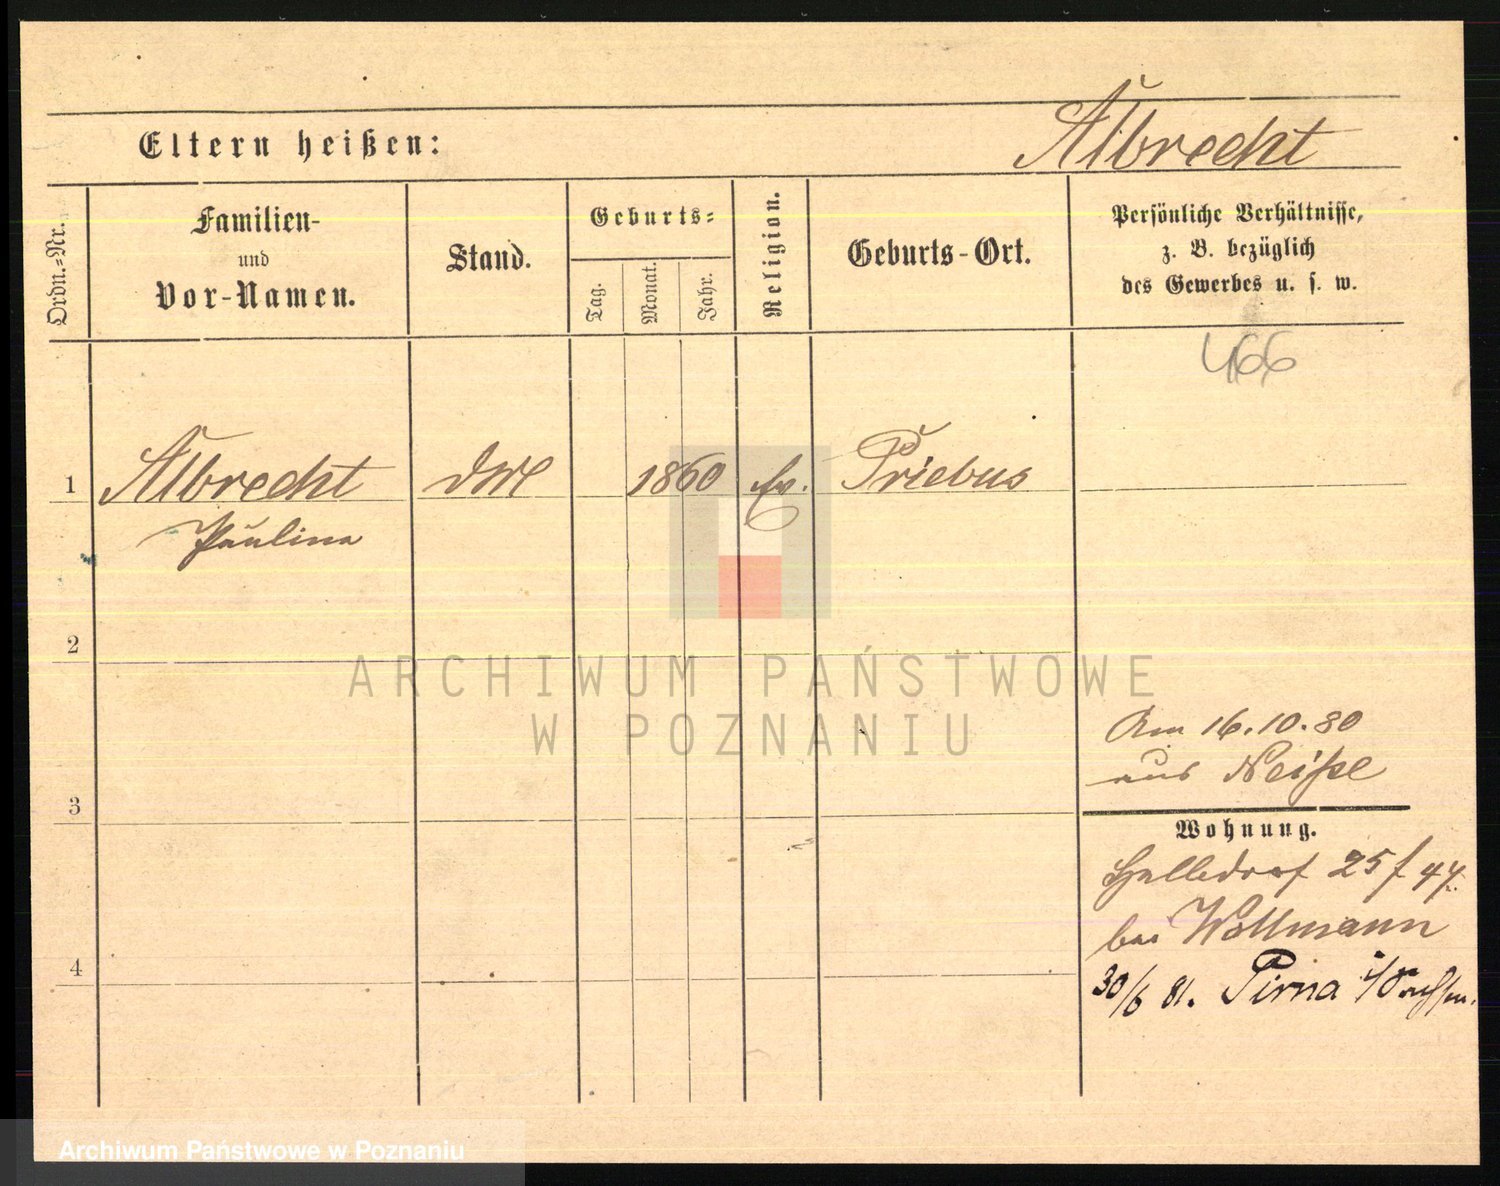 Albrecht
Eltern heißen:
Ordn.-Nr.
Familien-
und
Vor-Namen.
Stand.
Geburts-
Tag.
Monat.
Jahr.
Religion.
Geburts-Ort.
Persönliche Verhältnisse,
z. B. bezüglich
des Gewerbes u. s. w.
466
1 Albrecht 1860 Ev. Priebus
Paulina
2
ARCHIWUM PAŃSTWOWE
W POZNANIU
Am 16.10.80
aus Neiße
3
Wohnung.
Halbdorf 25
bei Wollmann
4
30/6 81. Pirna i/Sachsen.
Archiwum Państwowe w Poznaniu